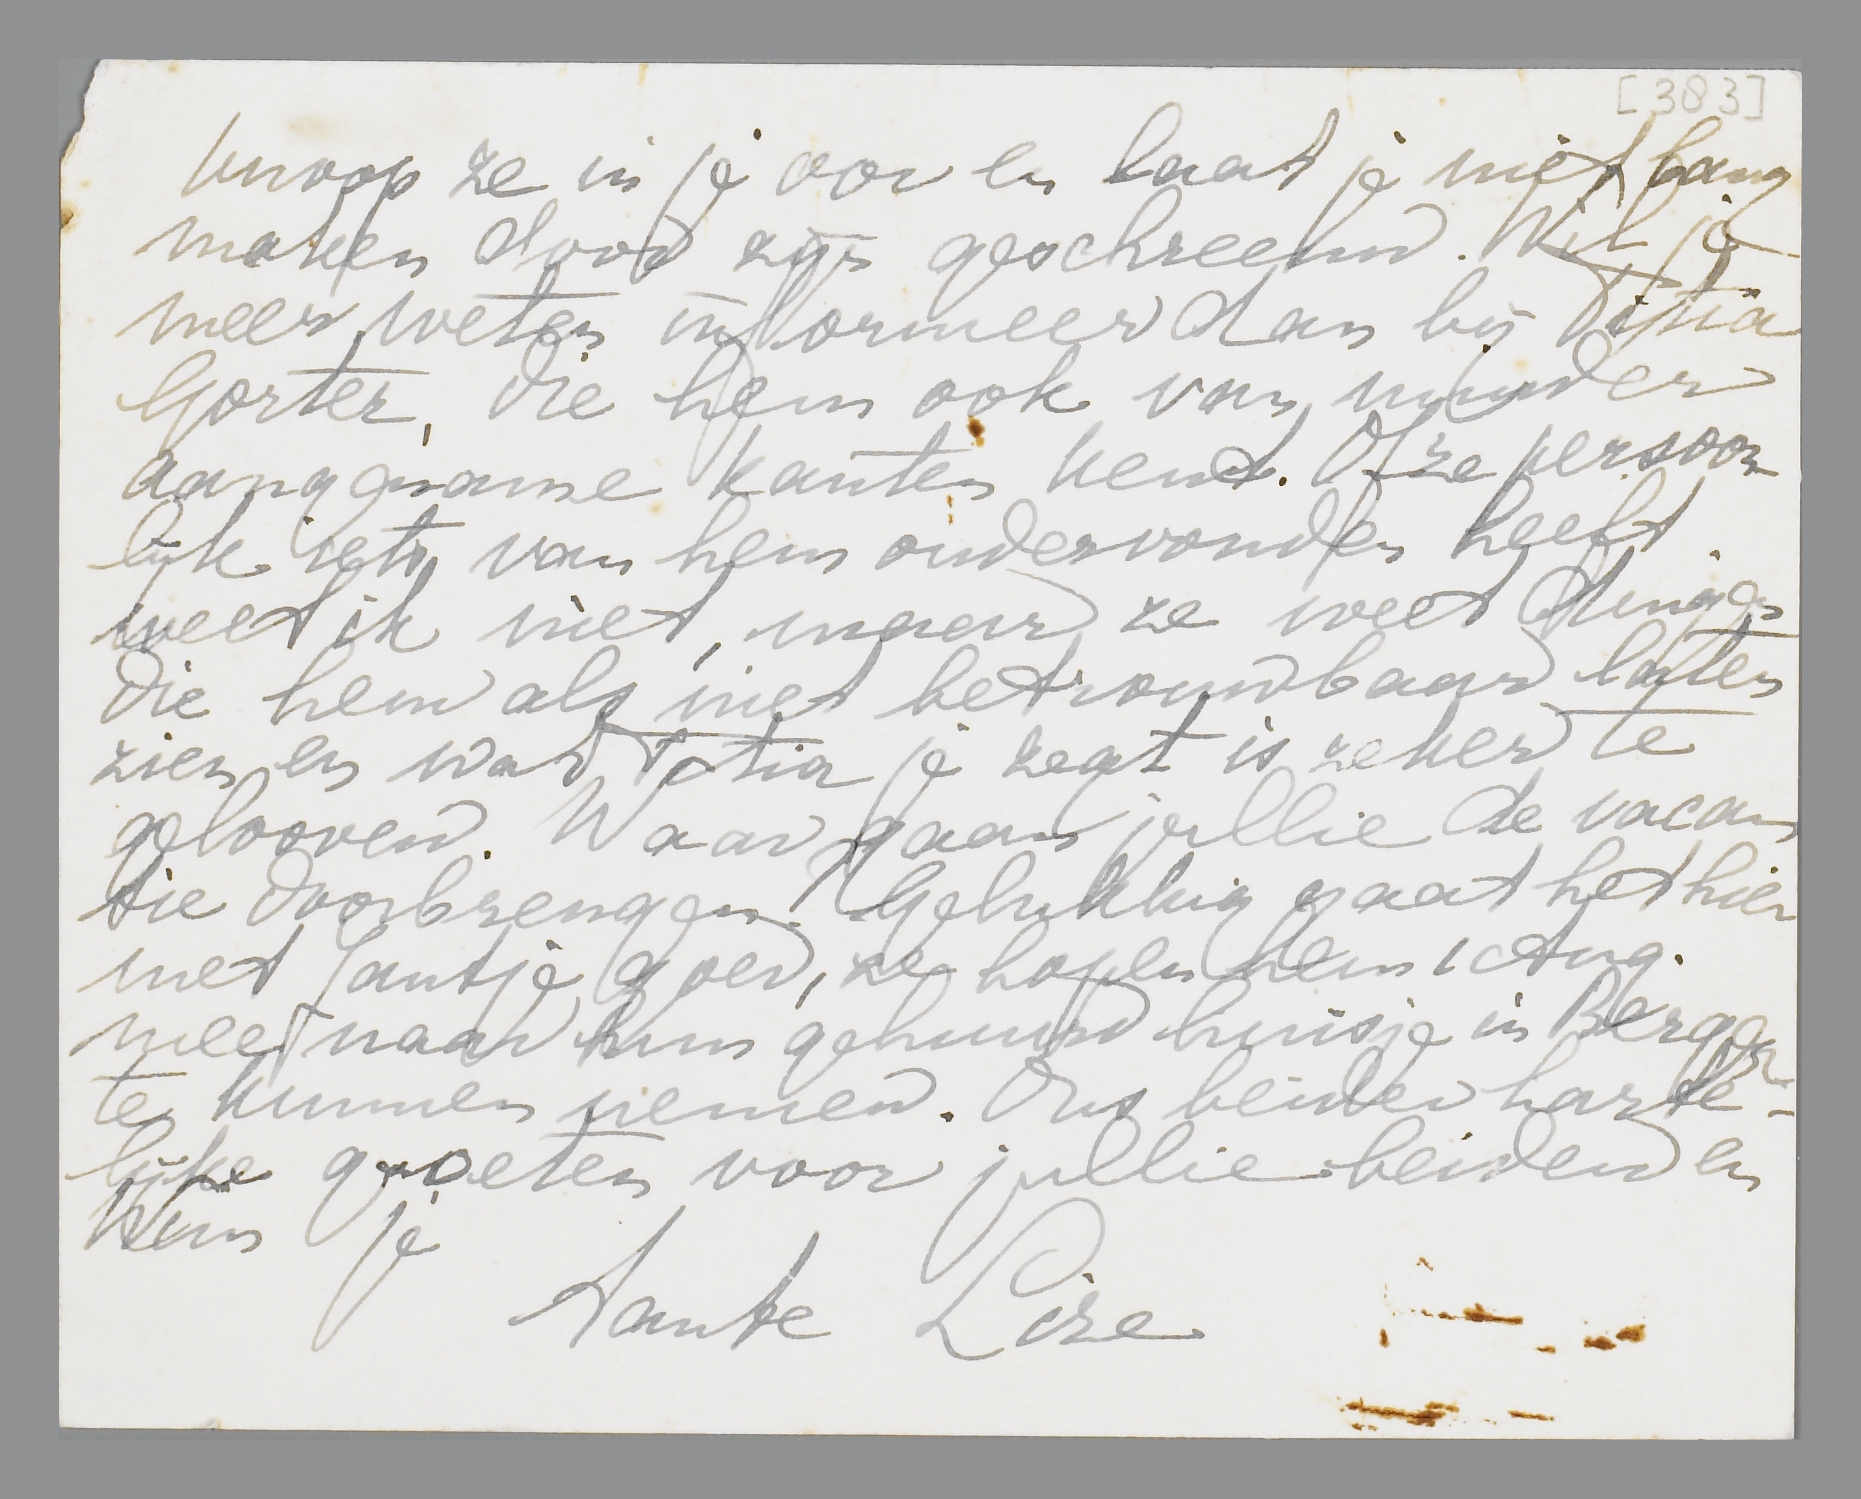 [383]
knoop ze in je oor en laat je niet bang
maken door zijn geschreeuw. Wil je
meer weten informeer dan bij Tjitia
Gorter, die hem ook van minder
aangename kanten kent. Of ze persoon
lijk iets van hem ondervonden heeft
weet ik niet, maar ze weet dingen
die hem als niet betrouwbaar laten
zien en wat Tjitia je zegt is zeker te
gelooven. Waar gaan jullie de vacan
tie doorbrengen? Gelukkig gaat het hier
met Jantje goed, ze hopen hem 1 Aug.
mee naar hun gehuurd huisje in Bergen
te kunnen nemen. Ons beider harte-
lijke groeten voor jullie beiden en
kus je
Tante Lize